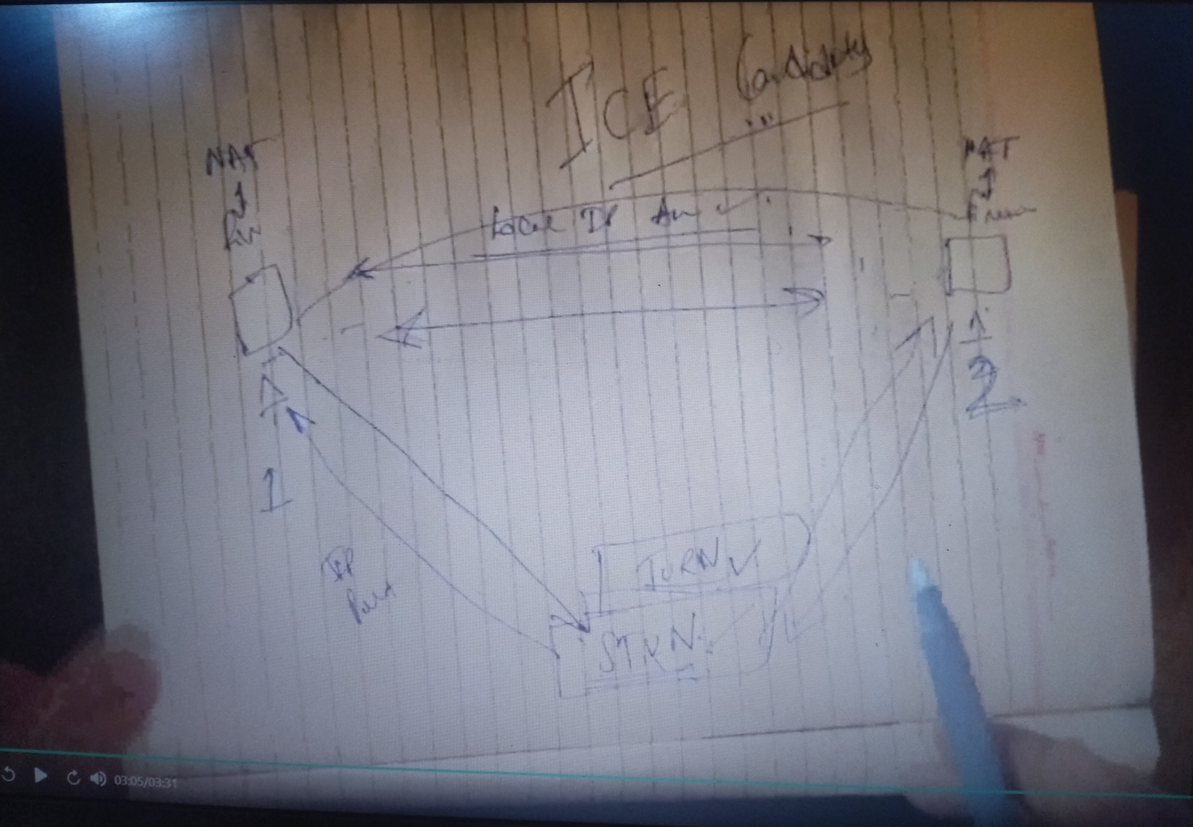 ICE Candidates
NAT
NAT
Local IP
1
2
IP
Port
TURN
STUN
03:05/03:31